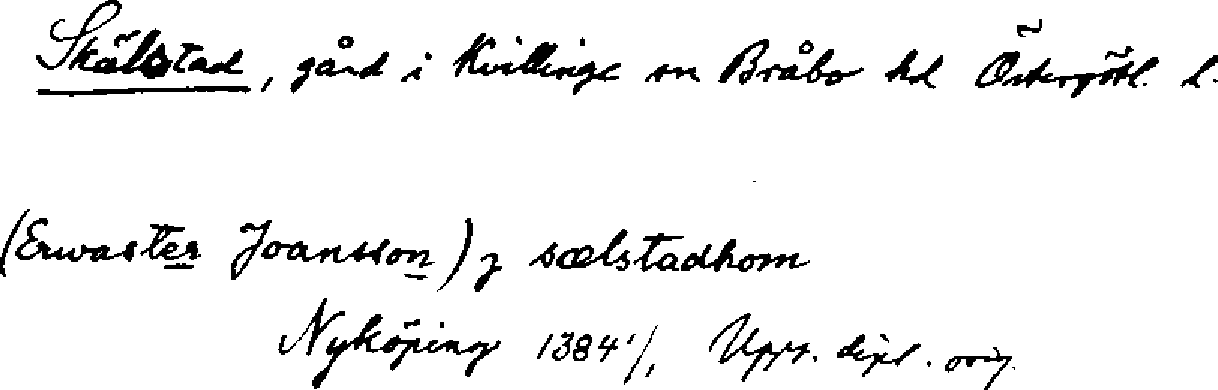 Skälstad, gård i Kvillinge sn Bråbo hd Östergötl. l.
(Erwaster Joansson) j sælstadhom
Nyköping 1384 1/1 Upps. dipl. orig.